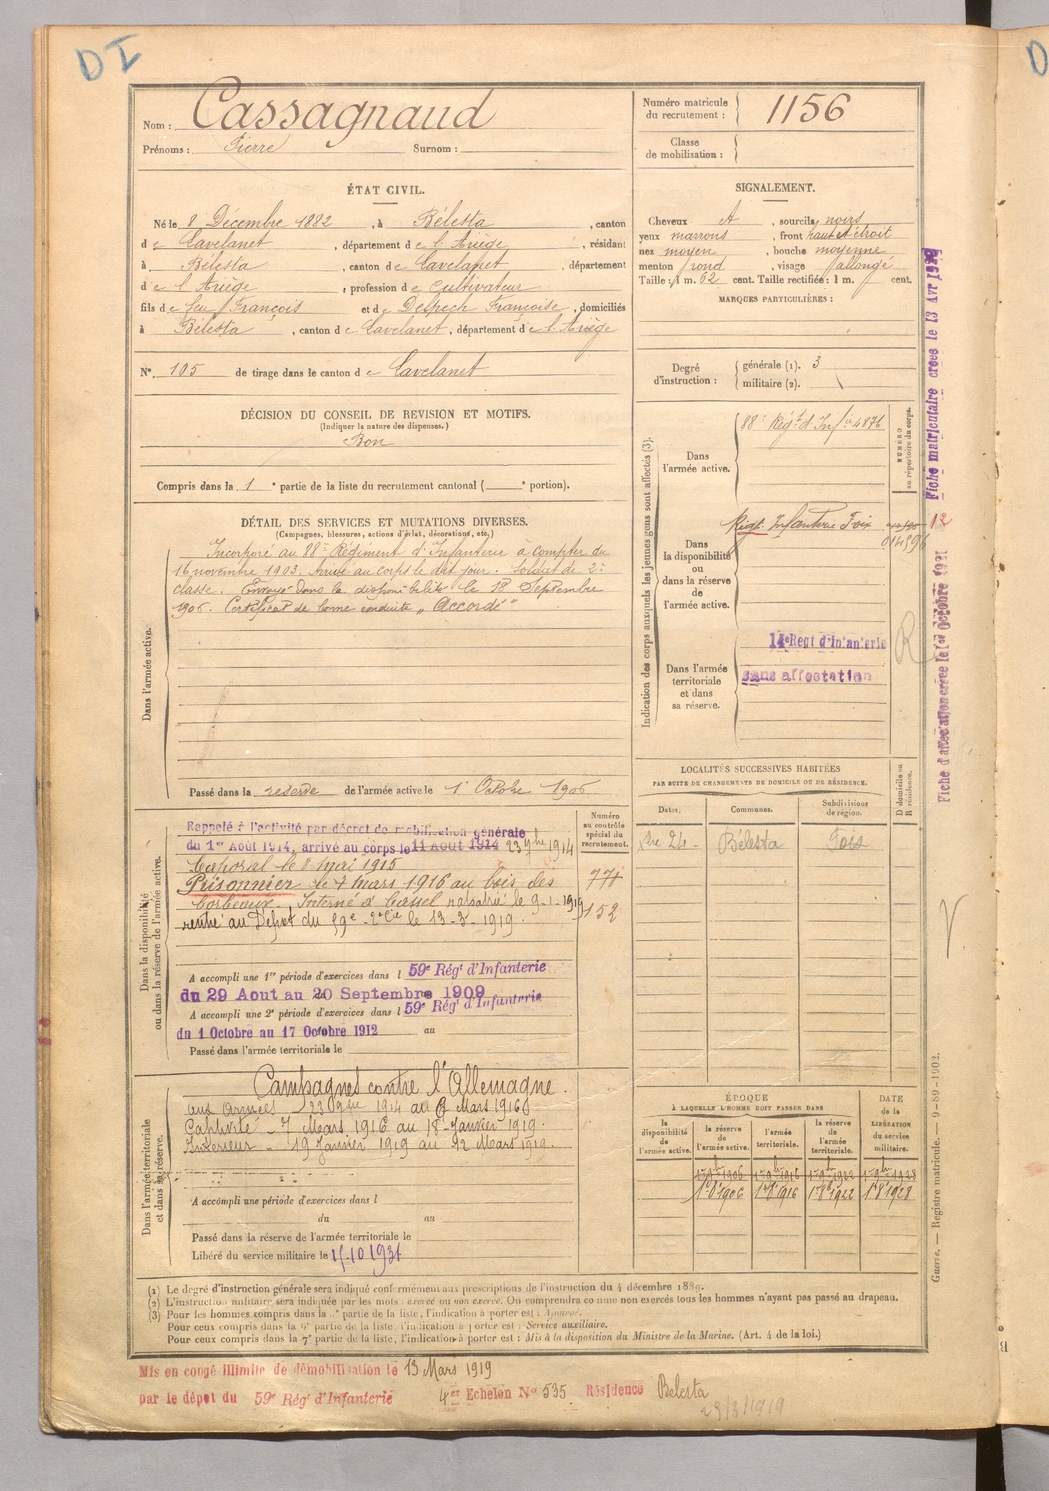 DI
Nom : Cassagnaud
Prénoms : Pierre Surnom :
Numéro matricule du recrutement : 1156
Classe de mobilisation :
ÉTAT CIVIL.
Né le 8 Décembre 1882, à Bélesta, canton
de Lavelanet, département de l'Ariège, résidant
à Bélesta, canton de Lavelanet, département
de l'Ariège, profession de Cultivateur
fils de feu François et de Despech Françoise, domiciliés
à Bélesta, canton de Lavelanet, département de l'Ariège
N° 105 de tirage dans le canton de Lavelanet
SIGNALEMENT.
Cheveux , sourcils noirs
yeux marrons, front haut et étroit
nez moyen, bouche moyenne
menton rond, visage allongé
Taille : 1 m. 62 cent. Taille rectifiée : 1 m. cent.
MARQUES PARTICULIÈRES :
Degré d'instruction :
générale (1). 3
militaire (2).
DÉCISION DU CONSEIL DE REVISION ET MOTIFS.
(Indiquer la nature des dispenses.)
Bon
Compris dans la 1e partie de la liste du recrutement cantonal ( e portion).
DÉTAIL DES SERVICES ET MUTATIONS DIVERSES.
(Campagnes, blessures, actions d'éclat, décorations, etc.)
Dans l'armée active.
Incorporé au 88e Régiment d'Infanterie à compter du
16 novembre 1903. Arrivé au corps le dit jour. Soldat de 2e
classe. Envoyé dans la disponibilité le 18 Septembre
1906. Certificat de bonne conduite "Accordé"
Passé dans la réserve de l'armée active le 1 Octobre 1906
Indication des corps auxquels les jeunes gens sont affectés (3).
NUMÉRO au répertoire du corps.
Dans l'armée active.
88e Régt d'Infie 4876
Dans la disponibilité ou dans la réserve de l'armée active.
Régt Infanterie Foix
12
Dans l'armée territoriale et dans sa réserve.
14e Regt d'Infanterie
sans affectation
R
Fiche matriculaire créée le 13 Avr
Fiche d'affectation créée le 1er Octobre
LOCALITÉS SUCCESSIVES HABITÉES
PAR SUITE DE CHANGEMENTS DE DOMICILE OU DE RÉSIDENCE.
Dates. Communes. Subdivisions de région. D domicile ou R résidence.
Bélesta Foix
Dans la disponibilité ou dans la réserve de l'armée active.
Numéro au contrôle spécial du recrutement.
Rappelé à l'activité par décret de mobilisation générale
du 1er Août 1914, arrivé au corps le 11 Août 1914 23 9bre 1914
Caporal le 8 mai 1915
Prisonnier le 7 mars 1916 au bois des
Corbeaux. Interné à Cassel rapatrié le 9-1-1919
rentré au Dépôt du 59e le 13-3-1919.
152
A accompli une 1re période d'exercices dans l 59e Régt d'Infanterie
du 29 Aout au 20 Septembre 1909
A accompli une 2e période d'exercices dans l 59e Régt d'Infanterie
du 1 Octobre au 17 Octobre 1912 au
Passé dans l'armée territoriale le
Dans l'armée territoriale et dans sa réserve.
Campagnes contre l'Allemagne.
aux Armées 23 9bre 1914 au 6 Mars 1916
Captivité - 7 Mars 1916 au 18 Janvier 1919.
Intérieur - 19 Janvier 1919 au 12 Mars 1919.
A accompli une période d'exercices dans l
du au
Passé dans la réserve de l'armée territoriale le
Libéré du service militaire le
ÉPOQUE
À LAQUELLE L'HOMME DOIT PASSER DANS
DATE de la LIBÉRATION du service militaire.
la disponibilité de l'armée active. la réserve de l'armée active. l'armée territoriale. la réserve de l'armée territoriale.
1er 9bre 1906 1er 9bre 1916 1er 9bre 1922 1er 9bre 1928
1er 8bre 1906 1er 8bre 1916 1er 8bre 1922 1er 8bre 1928
Guerre. — Registre matricule. — 9-89-1902.
(1) Le degré d'instruction générale sera indiqué conformément aux prescriptions de l'instruction du 4 décembre 1889.
(2) L'instruction militaire sera indiquée par les mots : exercé ou non exercé. On comprendra comme non exercés tous les hommes n'ayant pas passé au drapeau.
(3) Pour les hommes compris dans la partie de la liste, l'indication à porter est : Ajourné.
Pour ceux compris dans la partie de la liste, l'indication à porter est : Service auxiliaire.
Pour ceux compris dans la 7e partie de la liste, l'indication à porter est : Mis à la disposition du Ministre de la Marine. (Art. 4 de la loi.)
Mis en congé illimité de démobilisation le 13 Mars 1919
par le dépôt du 59e Régt d'Infanterie 4er Echelon N° 535 Résidence Bélesta
23/3/1919